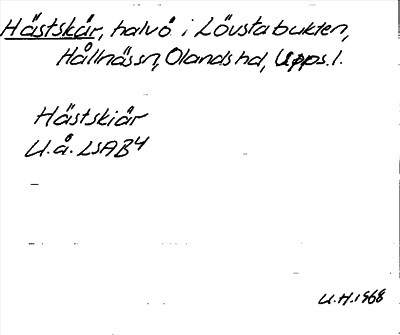 Hästskär, halvö i Lövstabukten,
Hållnäs sn, Olands hd, Upps.l.
Hästskiär
U.å. LSAB4
U.H. 1968